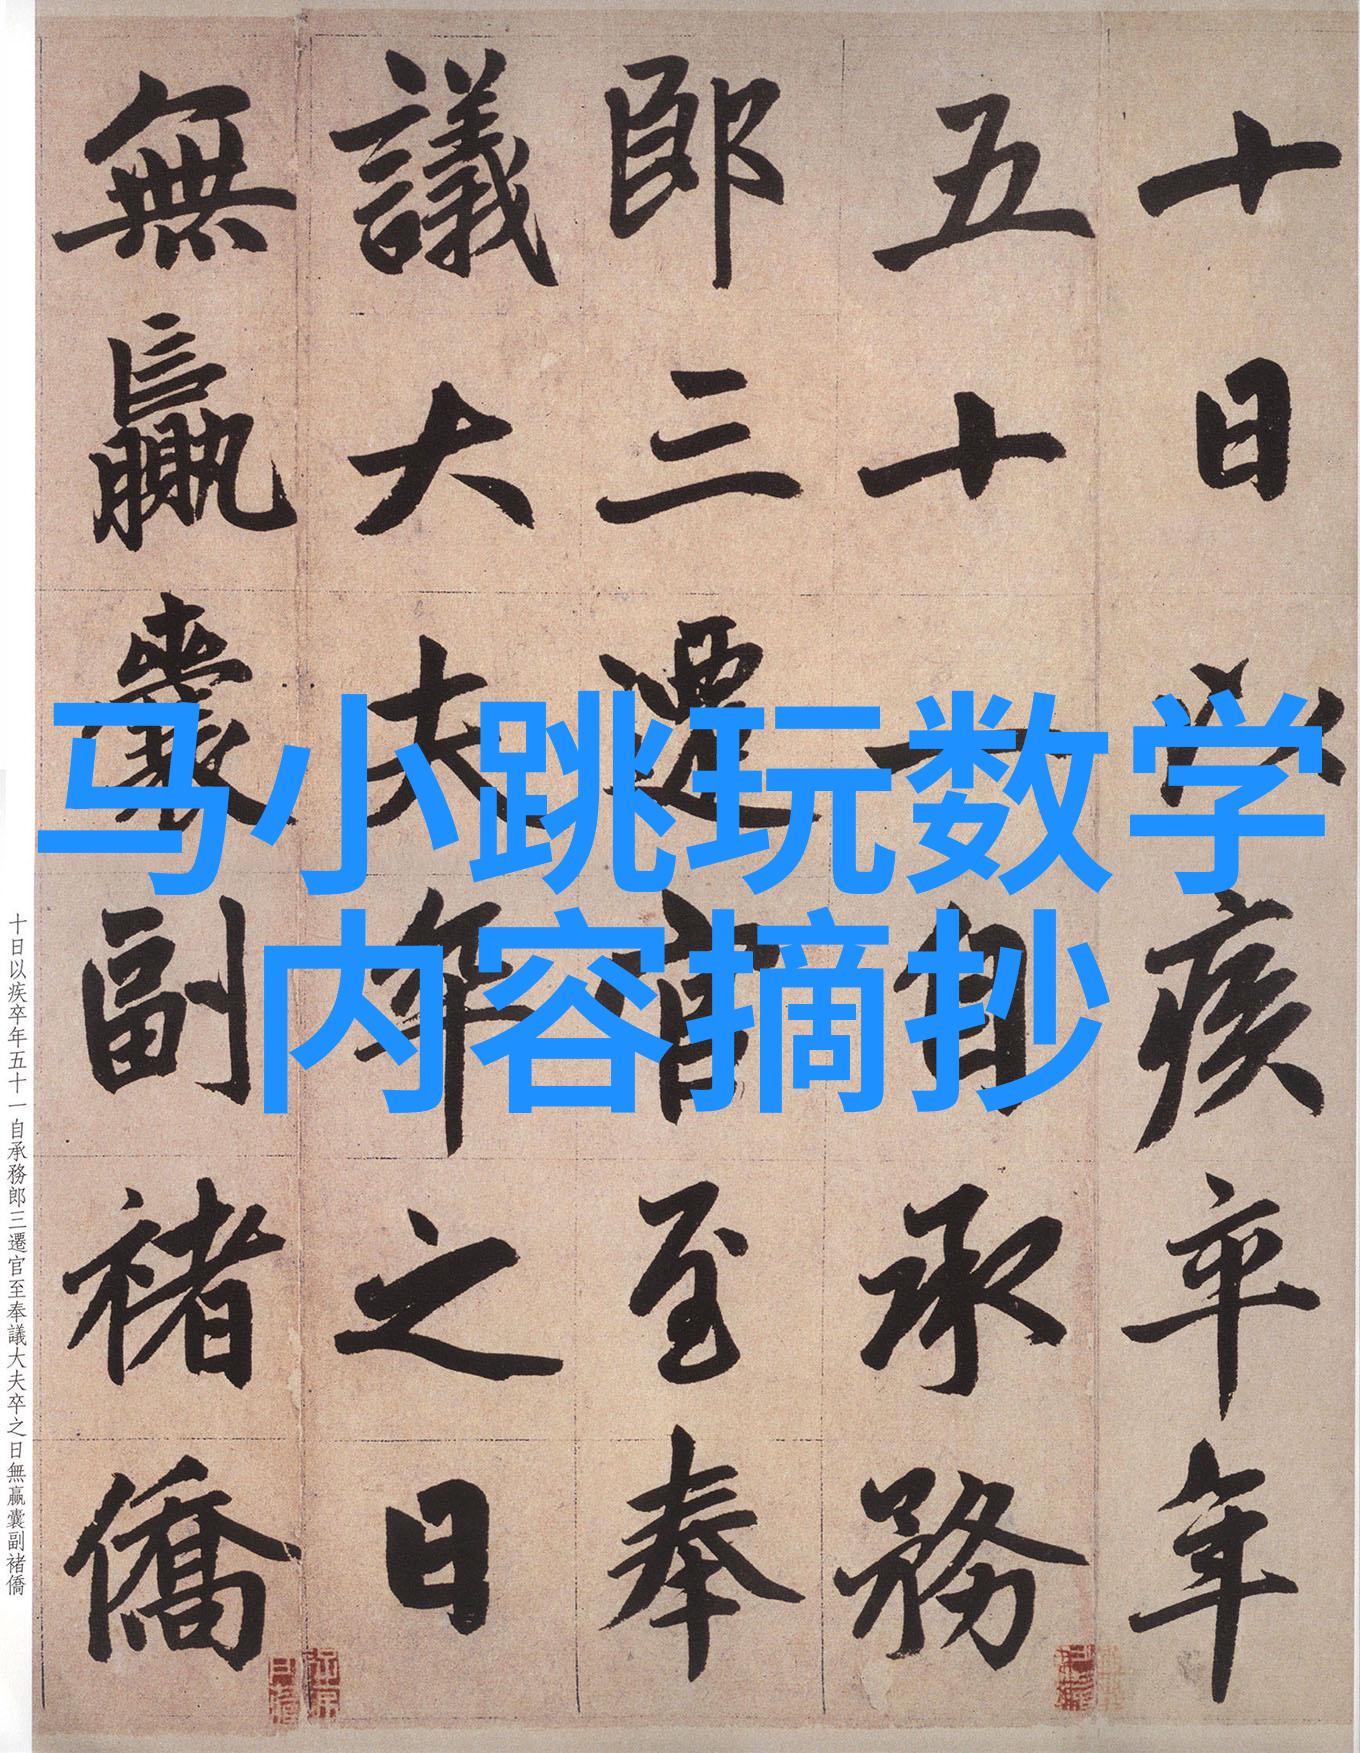 马小跳玩数学
内容摘抄
十日以疾卒年
五十一自承務
郎三遷官至奉
議大夫卒之日
無贏囊副褚僑
十日以疾卒年五十一自承務郎三遷官至奉議大夫卒之日無贏囊副褚僑